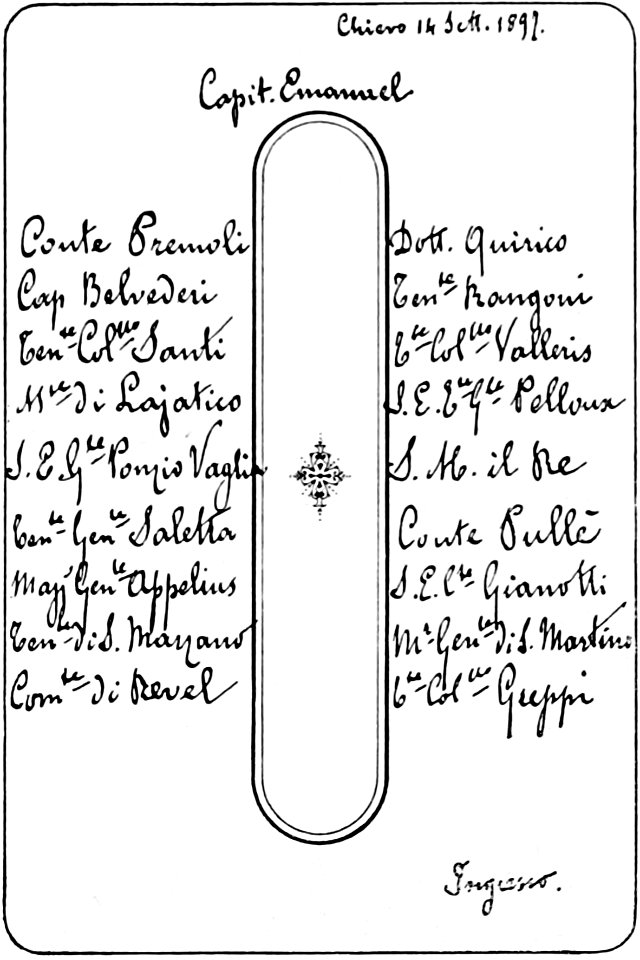 Chiero 14 Sett. 1897.
Capit. Emanuel
Conte Premoli
Cap Belvederi
Ten.te Col.llo Santi
M.se di Lajatico
S. E. G.le Ponzio Vaglia
Ten.te Gen.le Saletta
Magg Gen.le Appelius
Ten.te di S. Marzano
Com.te di Revel
Dott. Quirico
Ten.te Rangoni
T.te Col.llo Valleris
S. E. T.te G.le Pelloux
S. M. il Re
Conte Pullè
S. E. C.te Gianotti
M.r Gen.le di S. Martino
T.te Col.llo Greppi
Ingresso.